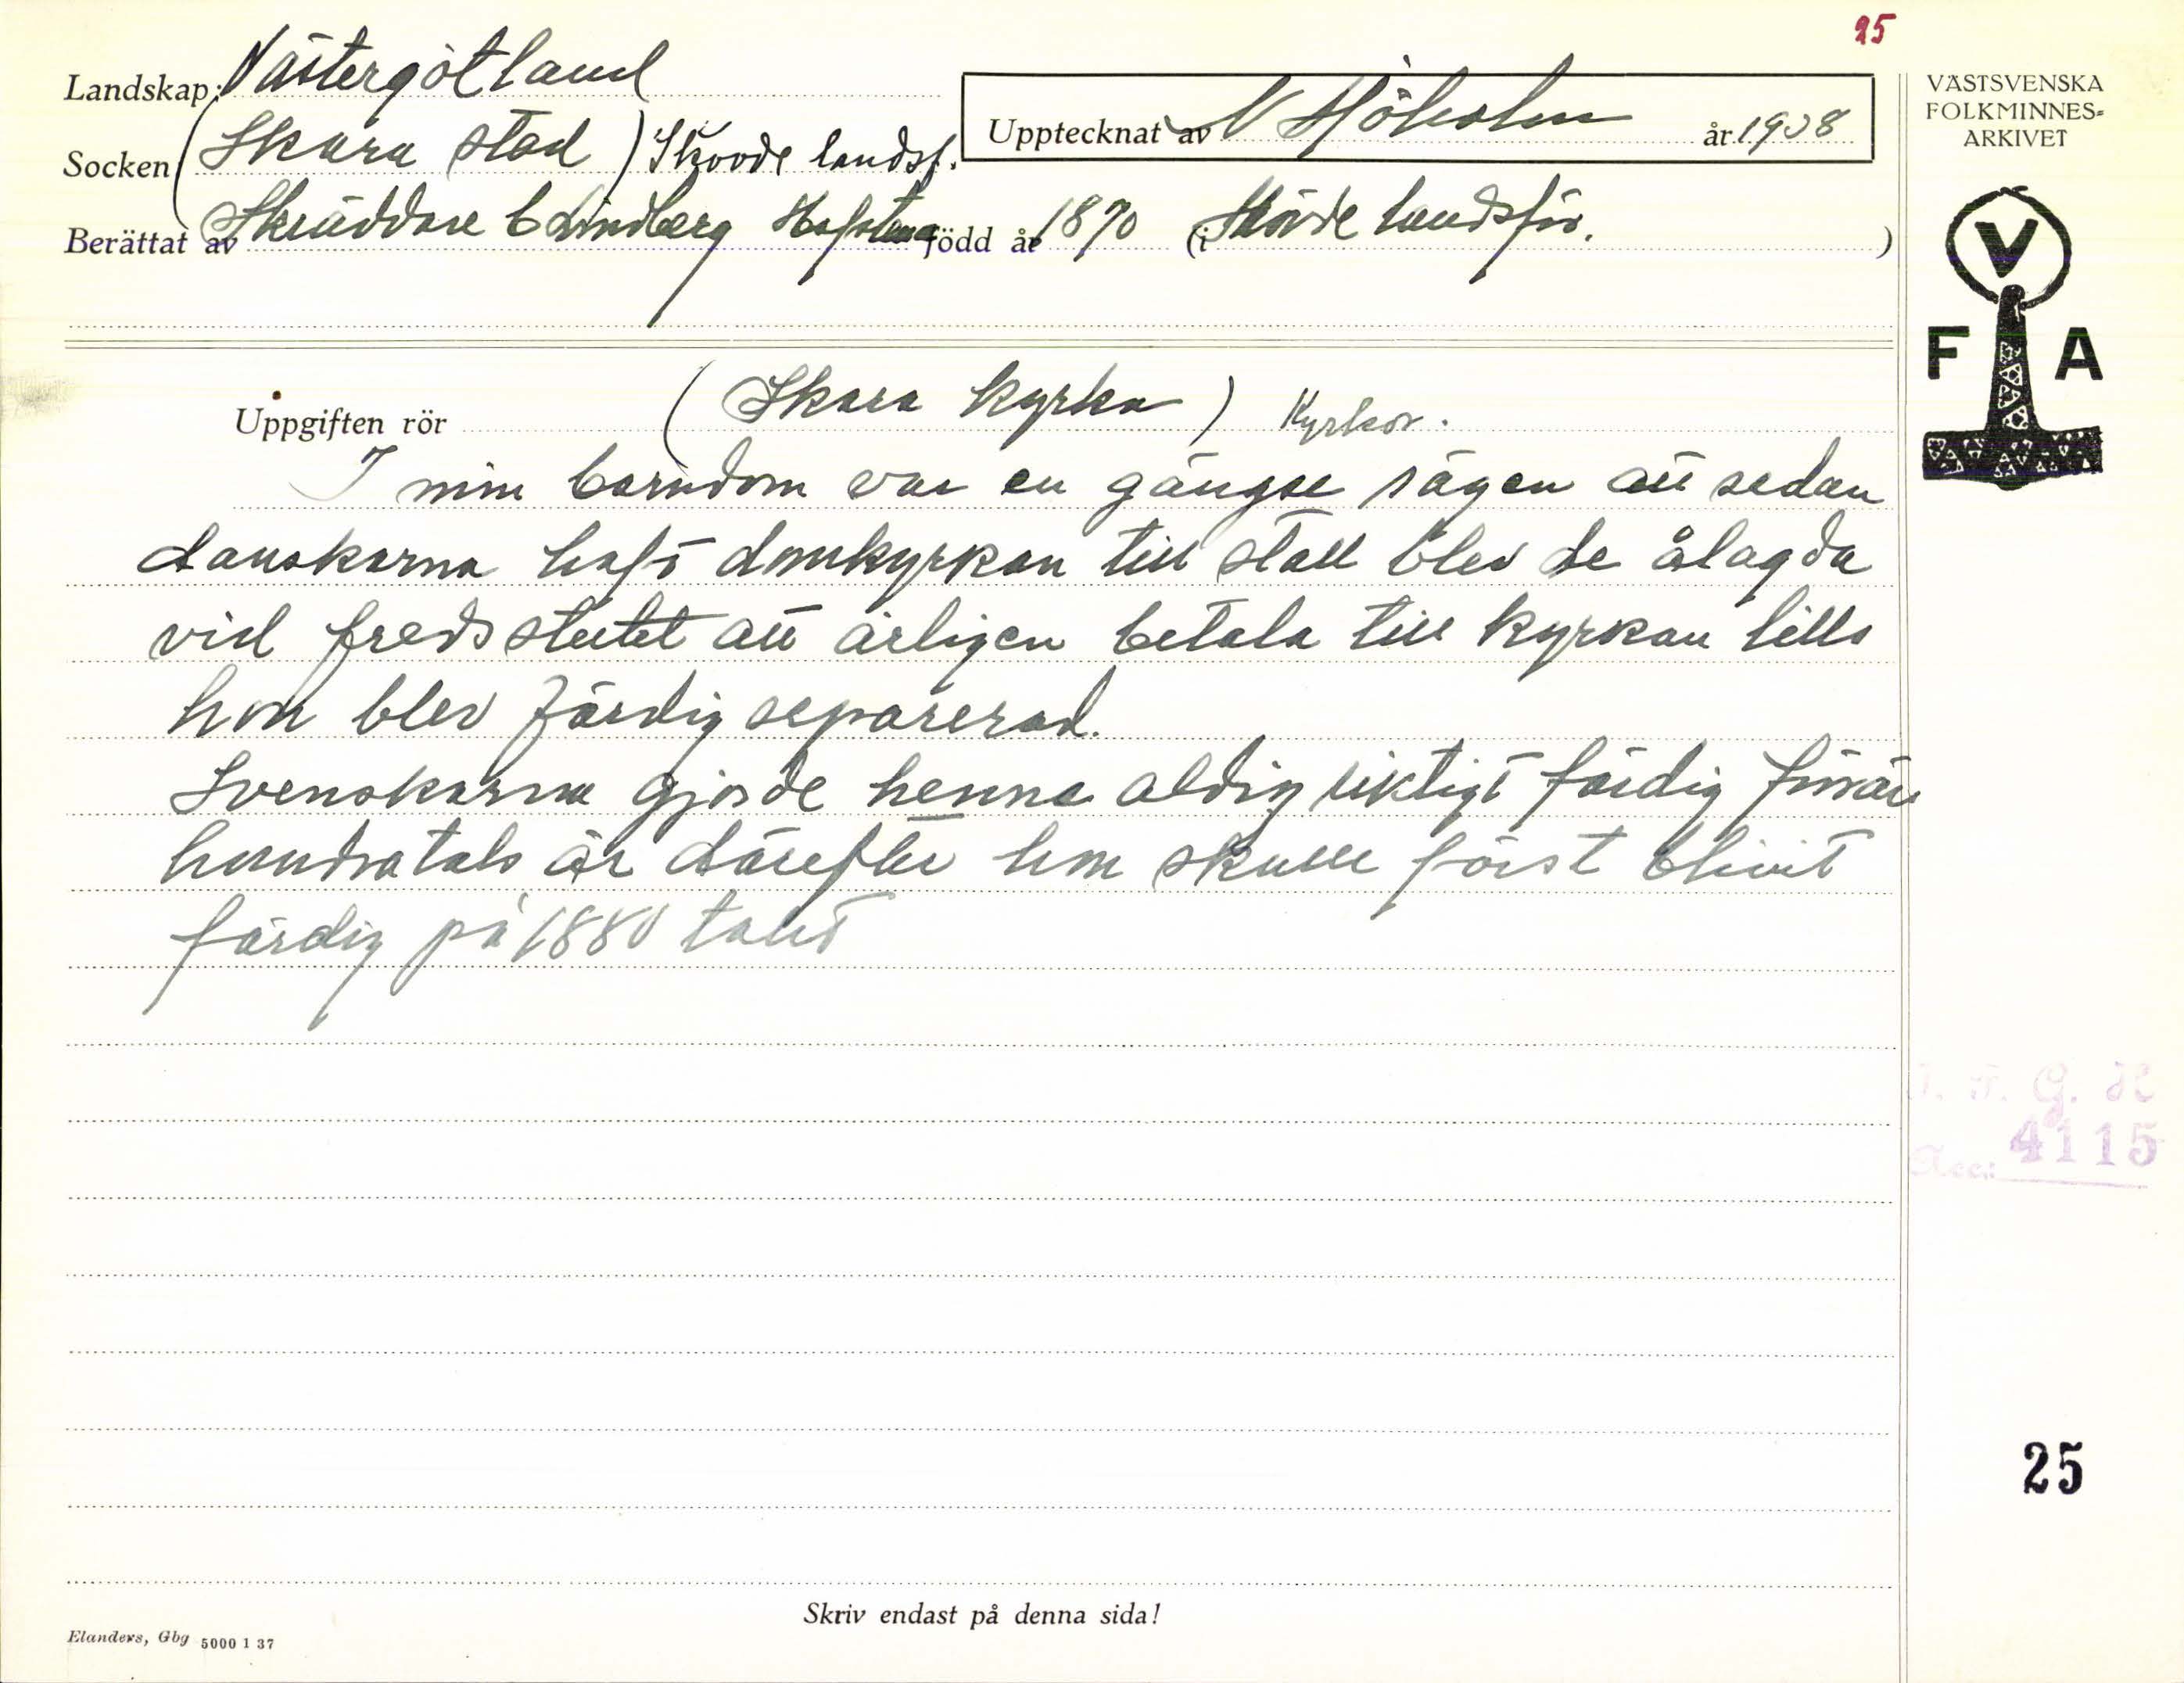 25
Landskap: Västergötland
Socken: (Skara stad) Skövde landsf.
Upptecknat av N Höholm år 1938
Berättat av Skräddare C Lindberg född år 1870 (i Skövde landsför.)
VÄSTSVENSKA
FOLKMINNES-
ARKIVET
V
F A
Uppgiften rör (Skara kyrka) Kyrkor.
I min barndom var en gängse sägen att sedan
danskarna haft domkyrkan till stall blev de ålagda
vid fredsslutet att årligen betala till kyrkan tills
hon blev färdig separerad.
Svenskarna gjorde henne aldrig riktigt färdig förrän
hundratals år därefter hon skulle först blivit
färdig på 1880 talet
4115
25
Skriv endast på denna sida!
Elanders, Gbg 5000 1 37